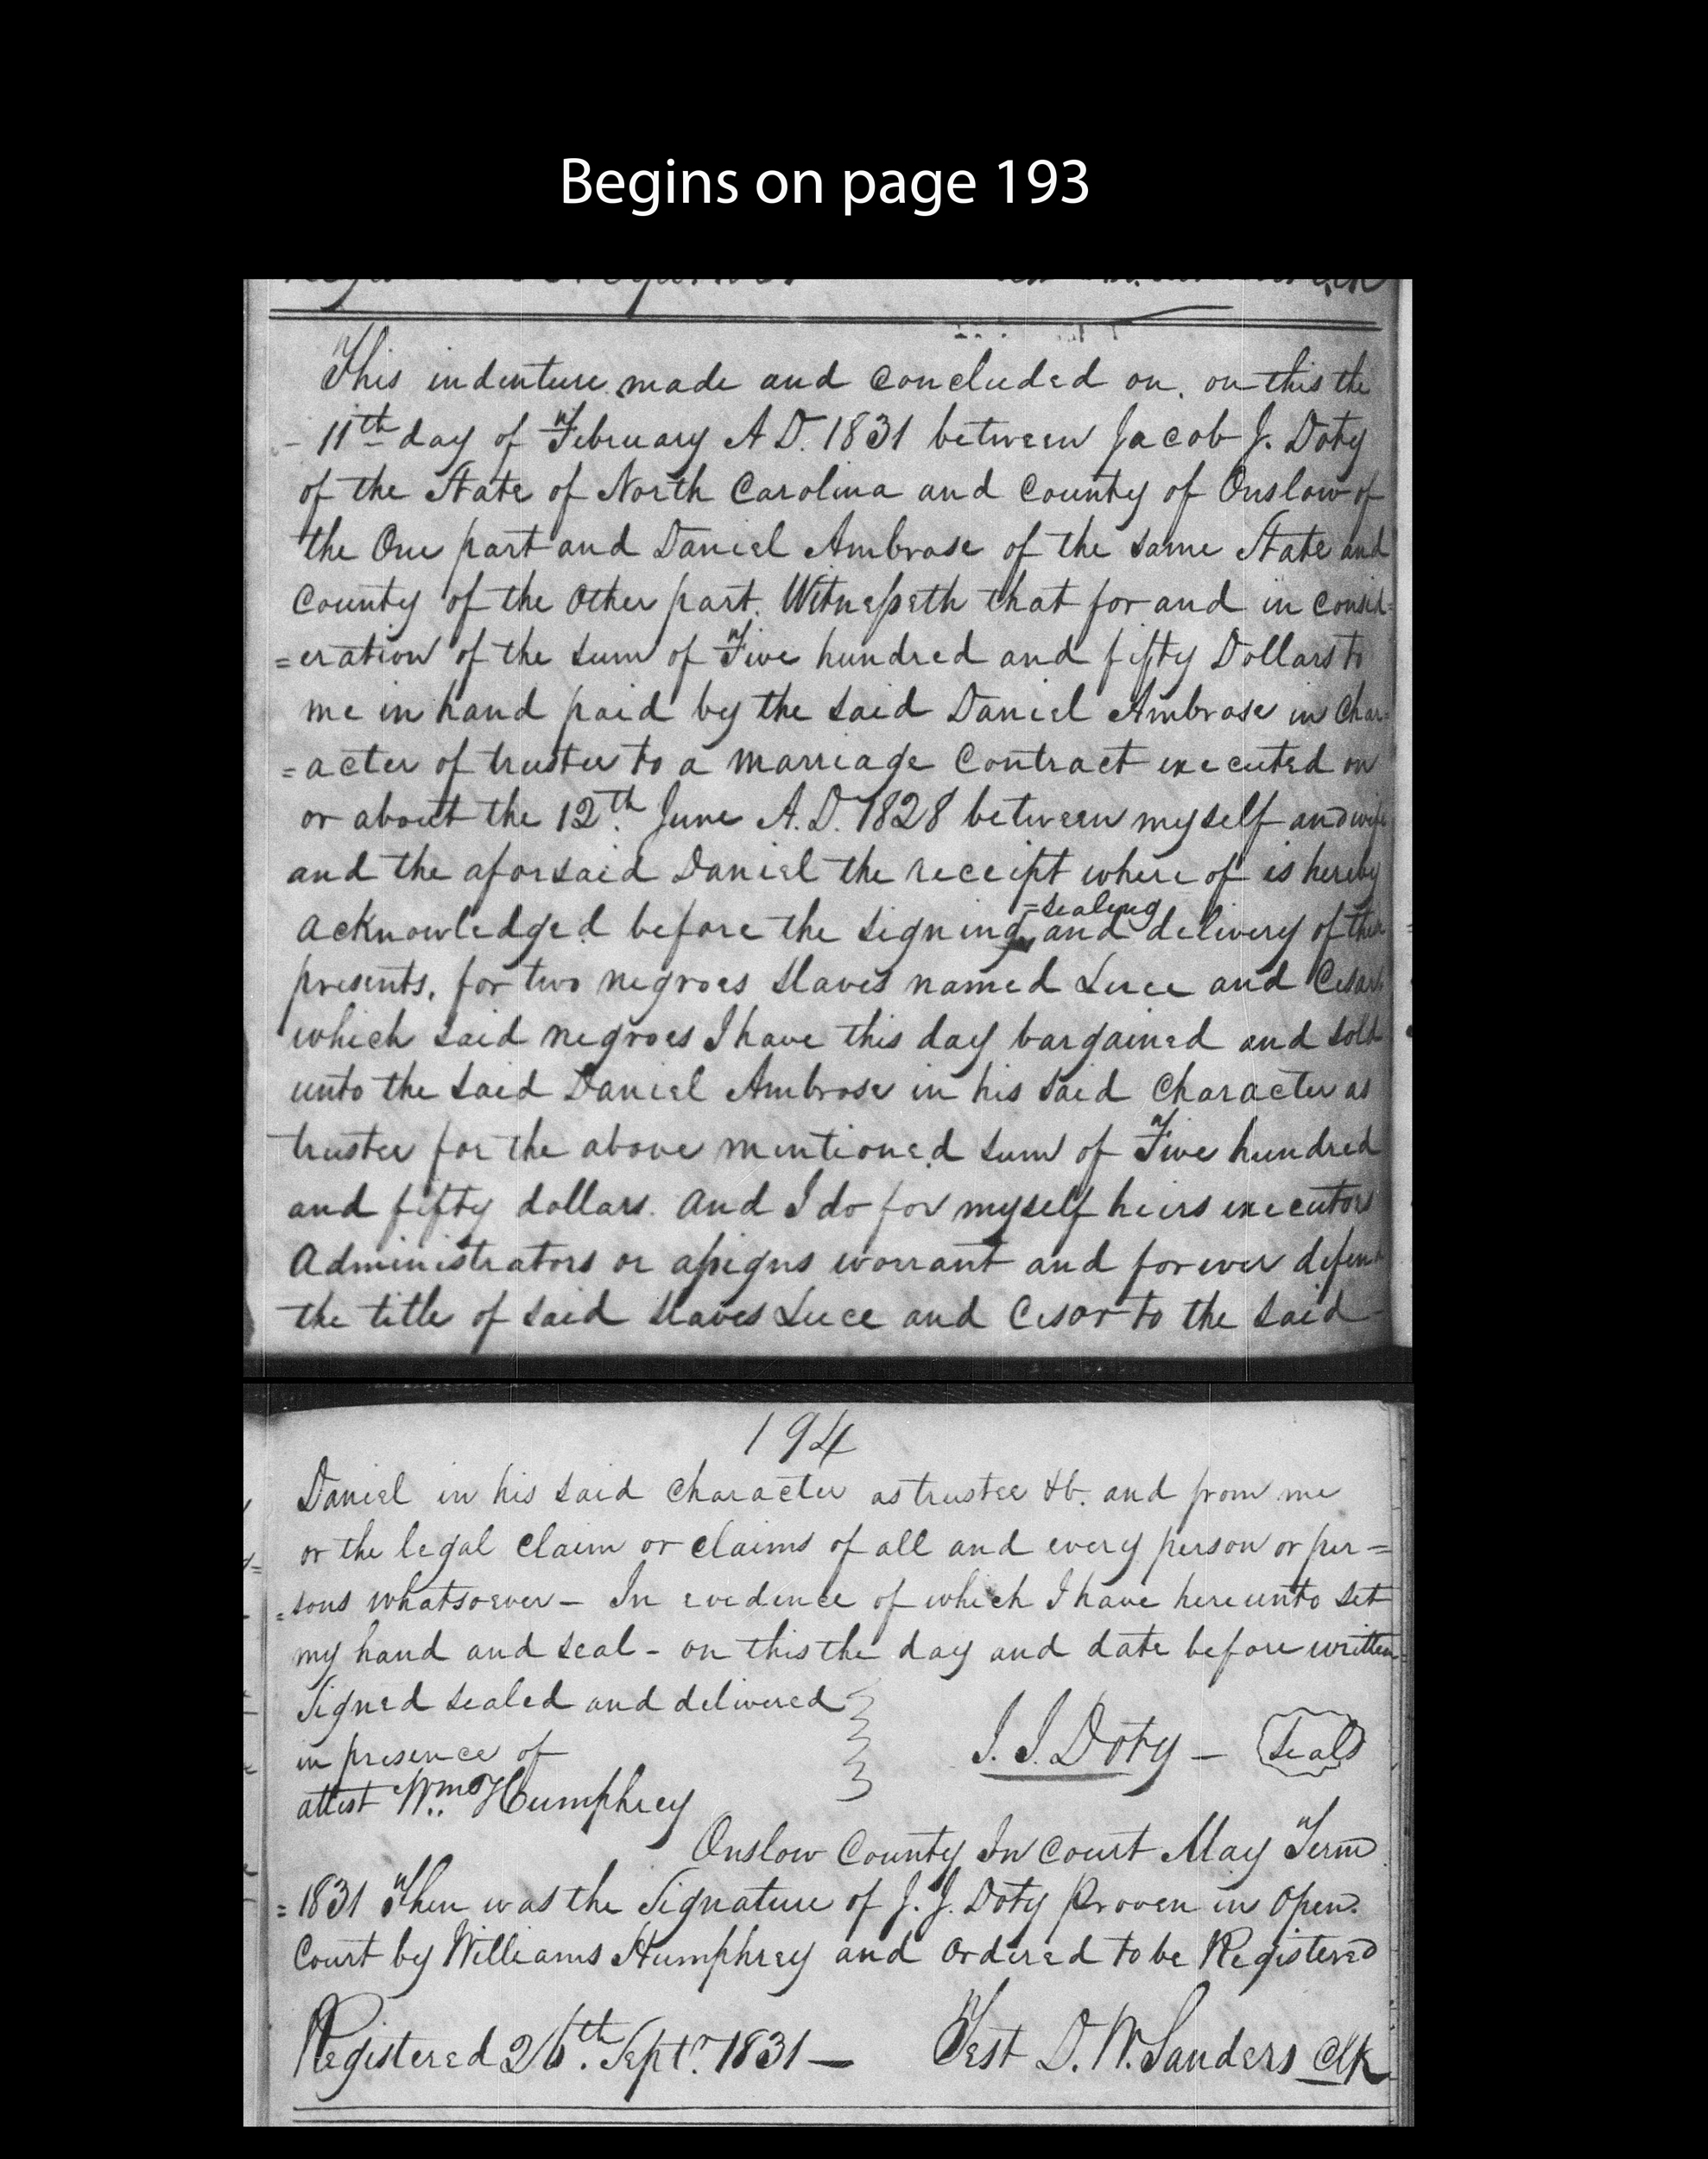 Begins on page 193
This indenture made and concluded on, on this the
- 11th day of February A D. 1831 between Jacob J. Doty
of the State of North Carolina and County of Onslow of
the One part and Daniel Ambrose of the same State and
County of the Other part. Witnesseth that for and in consid=
=eration of the sum of Five hundred and fifty Dollars to
me in hand paid by the said Daniel Ambrose in Char=
=acter of trustee to a marriage Contract executed on
or about the 12th. June A.D. 1828 between myself and wife
and the aforsaid Daniel the receipt where of is hereby
=sealing
acknowledged before the signing, and delivery of these
presents, for two negroes slaves named Luce and Cesar
which said negroes I have this day bargained and sold
unto the said Daniel Ambrose in his said Character as
trustee for the above mentioned sum of Five hundred
and fifty dollars. And I do for myself heirs executors
Administrators or assigns worrant and for ever defend
the title of said slaves Luce and Cesar to the said
194
Daniel in his said Character as trustee &c. and from me
or the legal claim or claims of all and every person or per=
=sons whatsoever - In evidence of which I have hereunto set
my hand and seal - on this the day and date before written
Signed sealed and delivered
in presence of
J. J. Doty - Seal
attest Wm. Humphrey
Onslow County In Court May Term
=1831 Then was the Signature of J. J. Doty Proven in Open
Court by Williams Humphrey and Ordered to be Registered
Registered 26th. Septr. 1831 — Test D. W. Sanders Clk